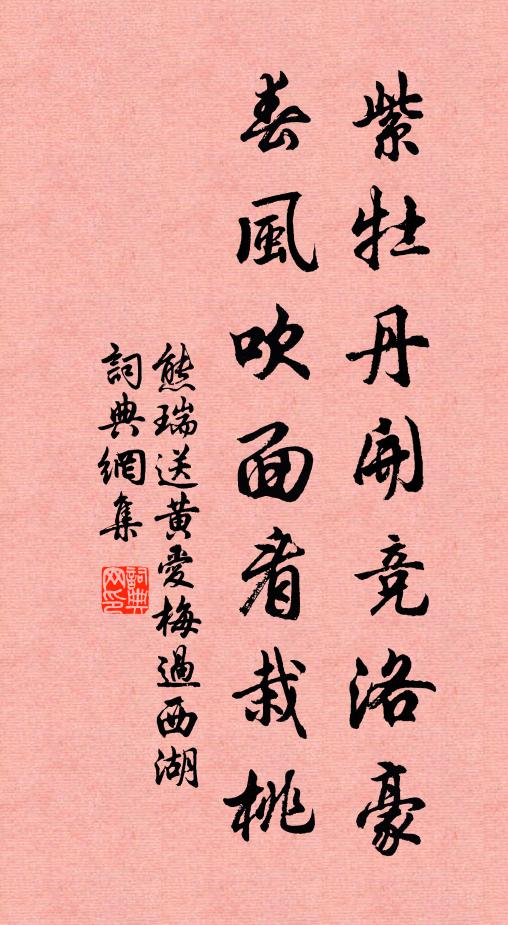 紫牡丹開競洛豪
春風吹面看栽桃
熊瑞送黄愛梅過西湖
詞典網集
詞典网印